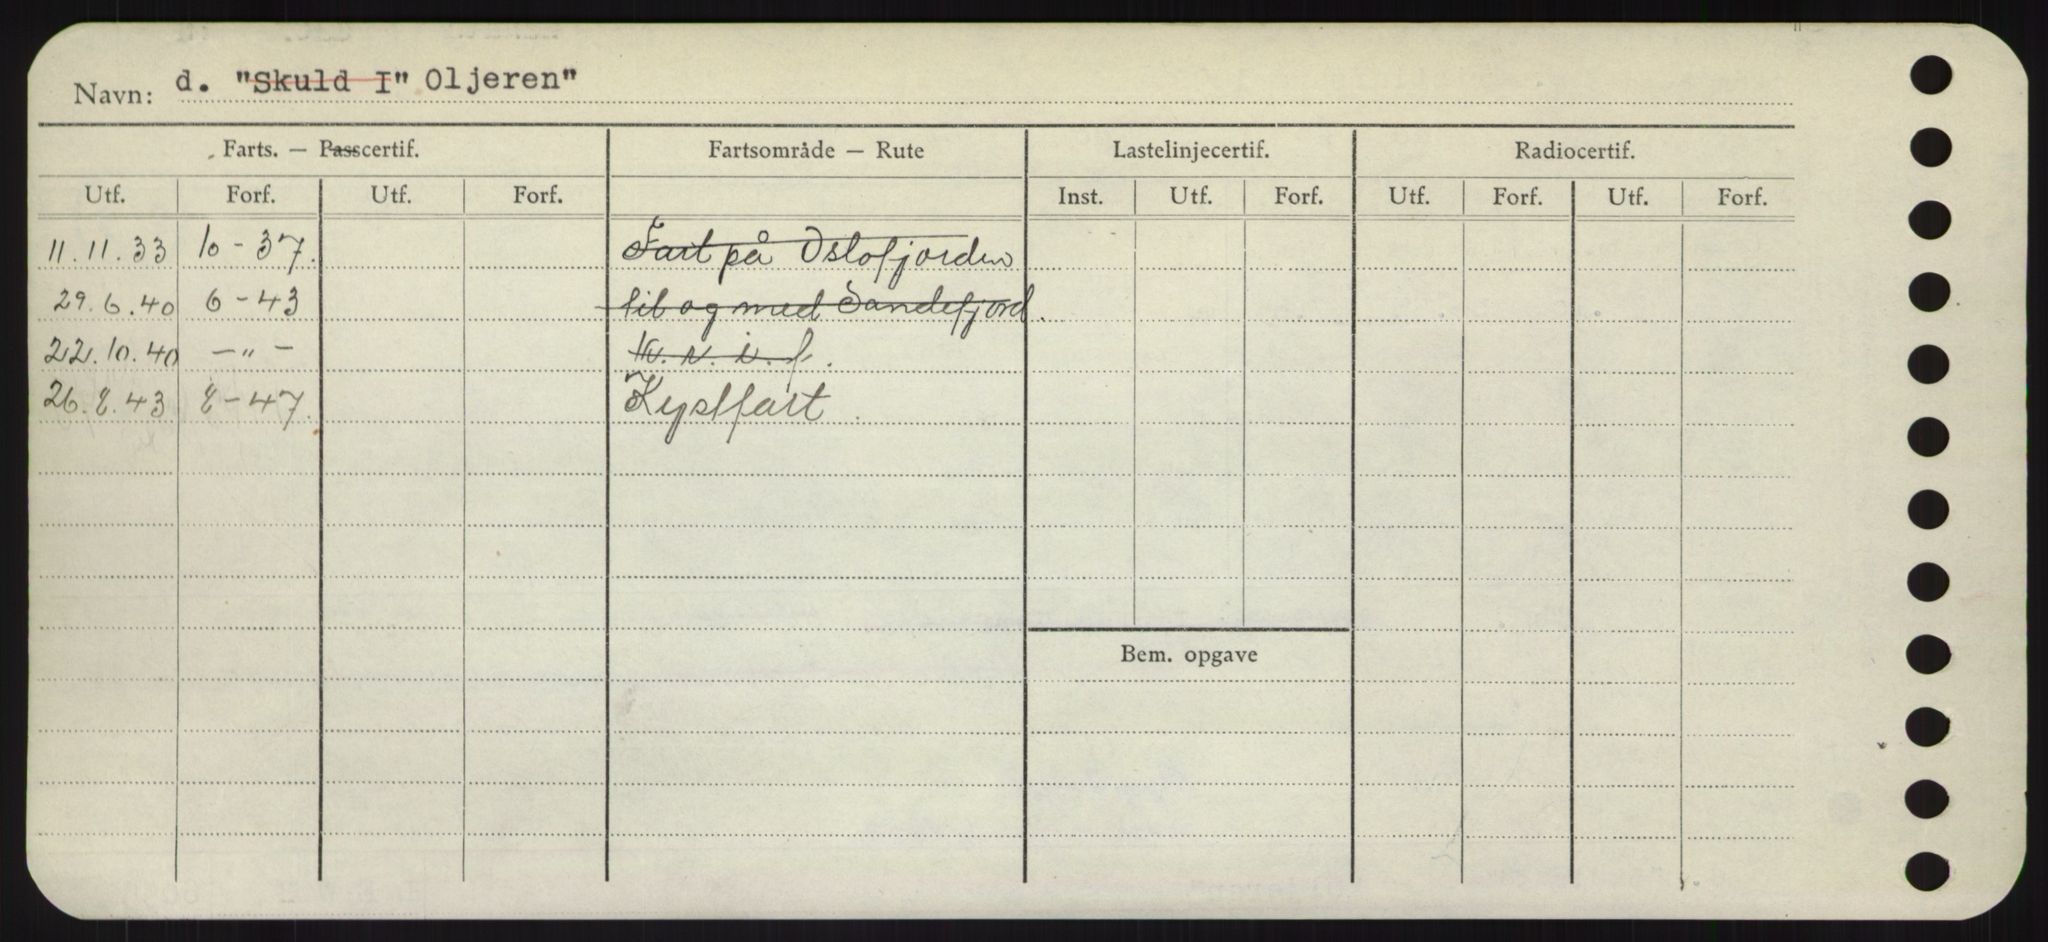 Navn: d. "Skuld I" Oljeren"
Farts. — Passcertif. Fartsområde — Rute Lastelinjecertif. Radiocertif.
Utf. Forf. Utf. Forf. Inst. Utf. Forf. Utf. Forf. Utf. Forf.
11.11.33 10-37. Fart på Oslofjorden
29.6.40 6-43 til og med Sandefjord.
22.10.40 -"-
26.8.43 8-47. Kystfart.
Bem. opgave